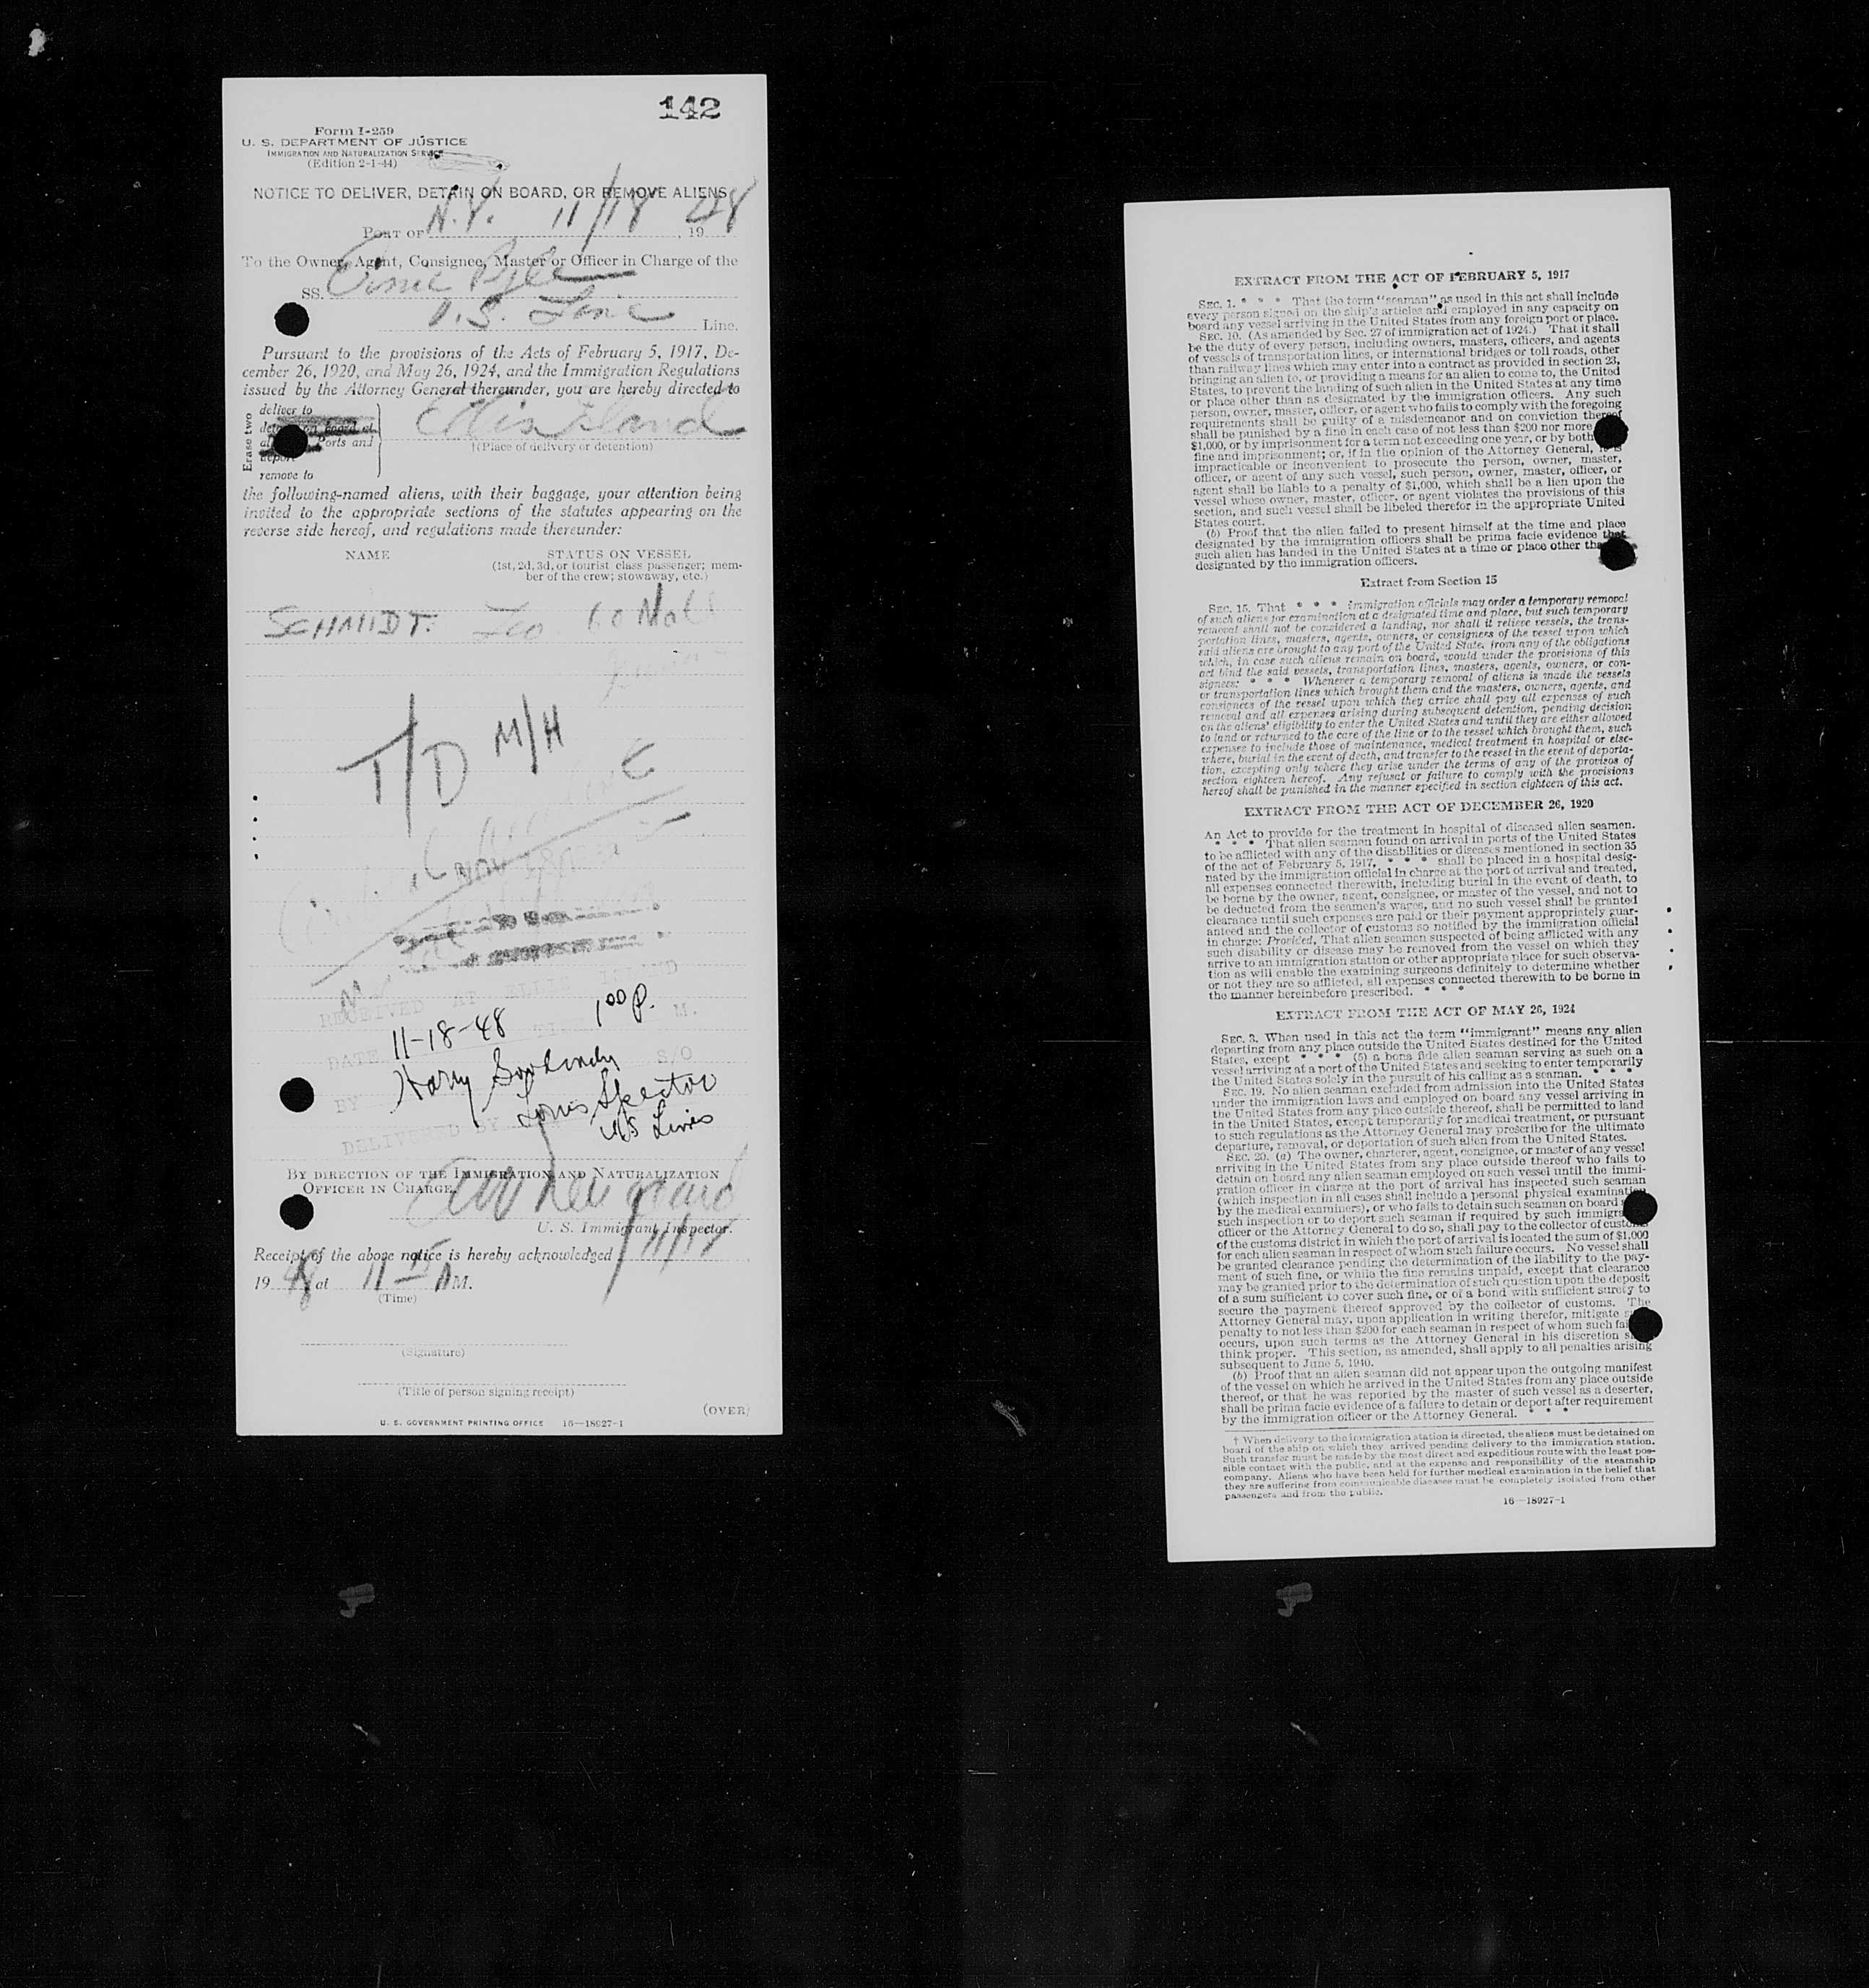 142
Form I-259
U. S. DEPARTMENT OF JUSTICE
IMMIGRATION AND NATURALIZATION SERVICE
(Edition 2-1-44)
NOTICE TO DELIVER, DETAIN ON BOARD, OR REMOVE ALIENS
PORT OF N.Y. 11/18, 1948
To the Owner, Agent, Consignee, Master or Officer in Charge of the
SS. Ernie Pyle
U.S. Line Line.
Pursuant to the provisions of the Acts of February 5, 1917, De-
cember 26, 1920, and May 26, 1924, and the Immigration Regulations
issued by the Attorney General thereunder, you are hereby directed to
Erase two
deliver to
Ports and
deport
remove to
Ellis Island
†(Place of delivery or detention)
the following-named aliens, with their baggage, your attention being
invited to the appropriate sections of the statutes appearing on the
reverse side hereof, and regulations made thereunder:
NAME STATUS ON VESSEL
(1st, 2d, 3d, or tourist class passenger; mem-
ber of the crew; stowaway, etc.)
SCHMIDT. Leo
T/D M/H
RECEIVED AT ELLIS ISLAND
DATE 11-18-48 TIME 1 00 P. M.
BY Harry S/O
Louis Spector
US Lines
DELIVERED BY
BY DIRECTION OF THE IMMIGRATION AND NATURALIZATION
OFFICER IN CHARGE
U. S. Immigrant Inspector.
Receipt of the above notice is hereby acknowledged 11/18
1948 at 11 15 A M.
(Time)
(Signature)
(Title of person signing receipt)
(OVER)
U. S. GOVERNMENT PRINTING OFFICE 16—18927-1
EXTRACT FROM THE ACT OF FEBRUARY 5, 1917
SEC. 1. * * * That the term "seaman" as used in this act shall include
every person signed on the ship's articles and employed in any capacity on
board any vessel arriving in the United States from any foreign port or place.
SEC. 10. (As amended by Sec. 27 of immigration act of 1924.) That it shall
be the duty of every person, including owners, masters, officers, and agents
of vessels of transportation lines, or international bridges or toll roads, other
than railway lines which may enter into a contract as provided in section 23,
bringing an alien to, or providing a means for an alien to come to, the United
States, to prevent the landing of such alien in the United States at any time
or place other than as designated by the immigration officers. Any such
person, owner, master, officer, or agent who fails to comply with the foregoing
requirements shall be guilty of a misdemeanor and on conviction thereof
shall be punished by a fine in each case of not less than $200 nor more
$1,000, or by imprisonment for a term not exceeding one year, or by both
fine and imprisonment; or, if in the opinion of the Attorney General, it is
impracticable or inconvenient to prosecute the person, owner, master,
officer, or agent of any such vessel, such person, owner, master, officer, or
agent shall be liable to a penalty of $1,000, which shall be a lien upon the
vessel whose owner, master, officer, or agent violates the provisions of this
section, and such vessel shall be libeled therefor in the appropriate United
States court.
(b) Proof that the alien failed to present himself at the time and place
designated by the immigration officers shall be prima facie evidence that
such alien has landed in the United States at a time or place other than
designated by the immigration officers.
Extract from Section 15
SEC. 15. That * * * immigration officials may order a temporary removal
of such aliens for examination at a designated time and place, but such temporary
removal shall not be considered a landing, nor shall it relieve vessels, the trans-
portation lines, masters, agents, owners, or consignees of the vessel upon which
said aliens are brought to any port of the United States from any of the obligations
which, in case such aliens remain on board, would under the provisions of this
act bind the said vessels, transportation lines, masters, agents, owners, or con-
signees: * * * Whenever a temporary removal of aliens is made the vessels
or transportation lines which brought them and the masters, owners, agents, and
consignees of the vessel upon which they arrive shall pay all expenses of such
removal and all expenses arising during subsequent detention, pending decision
on the aliens' eligibility to enter the United States and until they are either allowed
to land or returned to the care of the line or to the vessel which brought them, such
expenses to include those of maintenance, medical treatment in hospital or else-
where, burial in the event of death, and transfer to the vessel in the event of deporta-
tion, excepting only where they arise under the terms of any of the provisos of
section eighteen hereof. Any refusal or failure to comply with the provisions
hereof shall be punished in the manner specified in section eighteen of this act.
EXTRACT FROM THE ACT OF DECEMBER 26, 1920
An Act to provide for the treatment in hospital of diseased alien seamen.
* * * That alien seamen found on arrival in ports of the United States
to be afflicted with any of the disabilities or diseases mentioned in section 35
of the act of February 5, 1917, * * * shall be placed in a hospital desig-
nated by the immigration official in charge at the port of arrival and treated,
all expenses connected therewith, including burial in the event of death, to
be borne by the owner, agent, consignee, or master of the vessel, and not to
be deducted from the seamen's wages, and no such vessel shall be granted
clearance until such expenses are paid or their payment appropriately guar-
anteed and the collector of customs so notified by the immigration official
in charge: Provided, That alien seamen suspected of being afflicted with any
such disability or disease may be removed from the vessel on which they
arrive to an immigration station or other appropriate place for such observa-
tion as will enable the examining surgeons definitely to determine whether
or not they are so afflicted, all expenses connected therewith to be borne in
the manner hereinbefore prescribed. * * *
EXTRACT FROM THE ACT OF MAY 26, 1924
SEC. 3. When used in this act the term "immigrant" means any alien
departing from any place outside the United States destined for the United
States, except * * * (5) a bona fide alien seaman serving as such on a
vessel arriving at a port of the United States and seeking to enter temporarily
the United States solely in the pursuit of his calling as a seaman. * * *
SEC. 19. No alien seaman excluded from admission into the United States
under the immigration laws and employed on board any vessel arriving in
the United States from any place outside thereof, shall be permitted to land
in the United States, except temporarily for medical treatment, or pursuant
to such regulations as the Attorney General may prescribe for the ultimate
departure, removal, or deportation of such alien from the United States.
SEC. 20. (a) The owner, charterer, agent, consignee, or master of any vessel
arriving in the United States from any place outside thereof who fails to
detain on board any alien seaman employed on such vessel until the immi-
gration officer in charge at the port of arrival has inspected such seaman
(which inspection in all cases shall include a personal physical examination
by the medical examiners), or who fails to detain such seaman on board
such inspection or to deport such seaman if required by such immigra
officer or the Attorney General to do so, shall pay to the collector of customs
of the customs district in which the port of arrival is located the sum of $1,000
for each alien seaman in respect of whom such failure occurs. No vessel shall
be granted clearance pending the determination of the liability to the pay-
ment of such fine, or while the fine remains unpaid, except that clearance
may be granted prior to the determination of such question upon the deposit
of a sum sufficient to cover such fine, or of a bond with sufficient surety to
secure the payment thereof approved by the collector of customs. The
Attorney General may, upon application in writing therefor, mitigate such
penalty to not less than $200 for each seaman in respect of whom such fai
occurs, upon such terms as the Attorney General in his discretion s
think proper. This section, as amended, shall apply to all penalties arising
subsequent to June 5, 1940.
(b) Proof that an alien seaman did not appear upon the outgoing manifest
of the vessel on which he arrived in the United States from any place outside
thereof, or that he was reported by the master of such vessel as a deserter,
shall be prima facie evidence of a failure to detain or deport after requirement
by the immigration officer or the Attorney General. * * *
† When delivery to the immigration station is directed, the aliens must be detained on
board of the ship on which they arrived pending delivery to the immigration station.
Such transfer must be made by the most direct and expeditious route with the least pos-
sible contact with the public, and at the expense and responsibility of the steamship
company. Aliens who have been held for further medical examination in the belief that
they are suffering from communicable diseases must be completely isolated from other
passengers and from the public.
16—18927-1